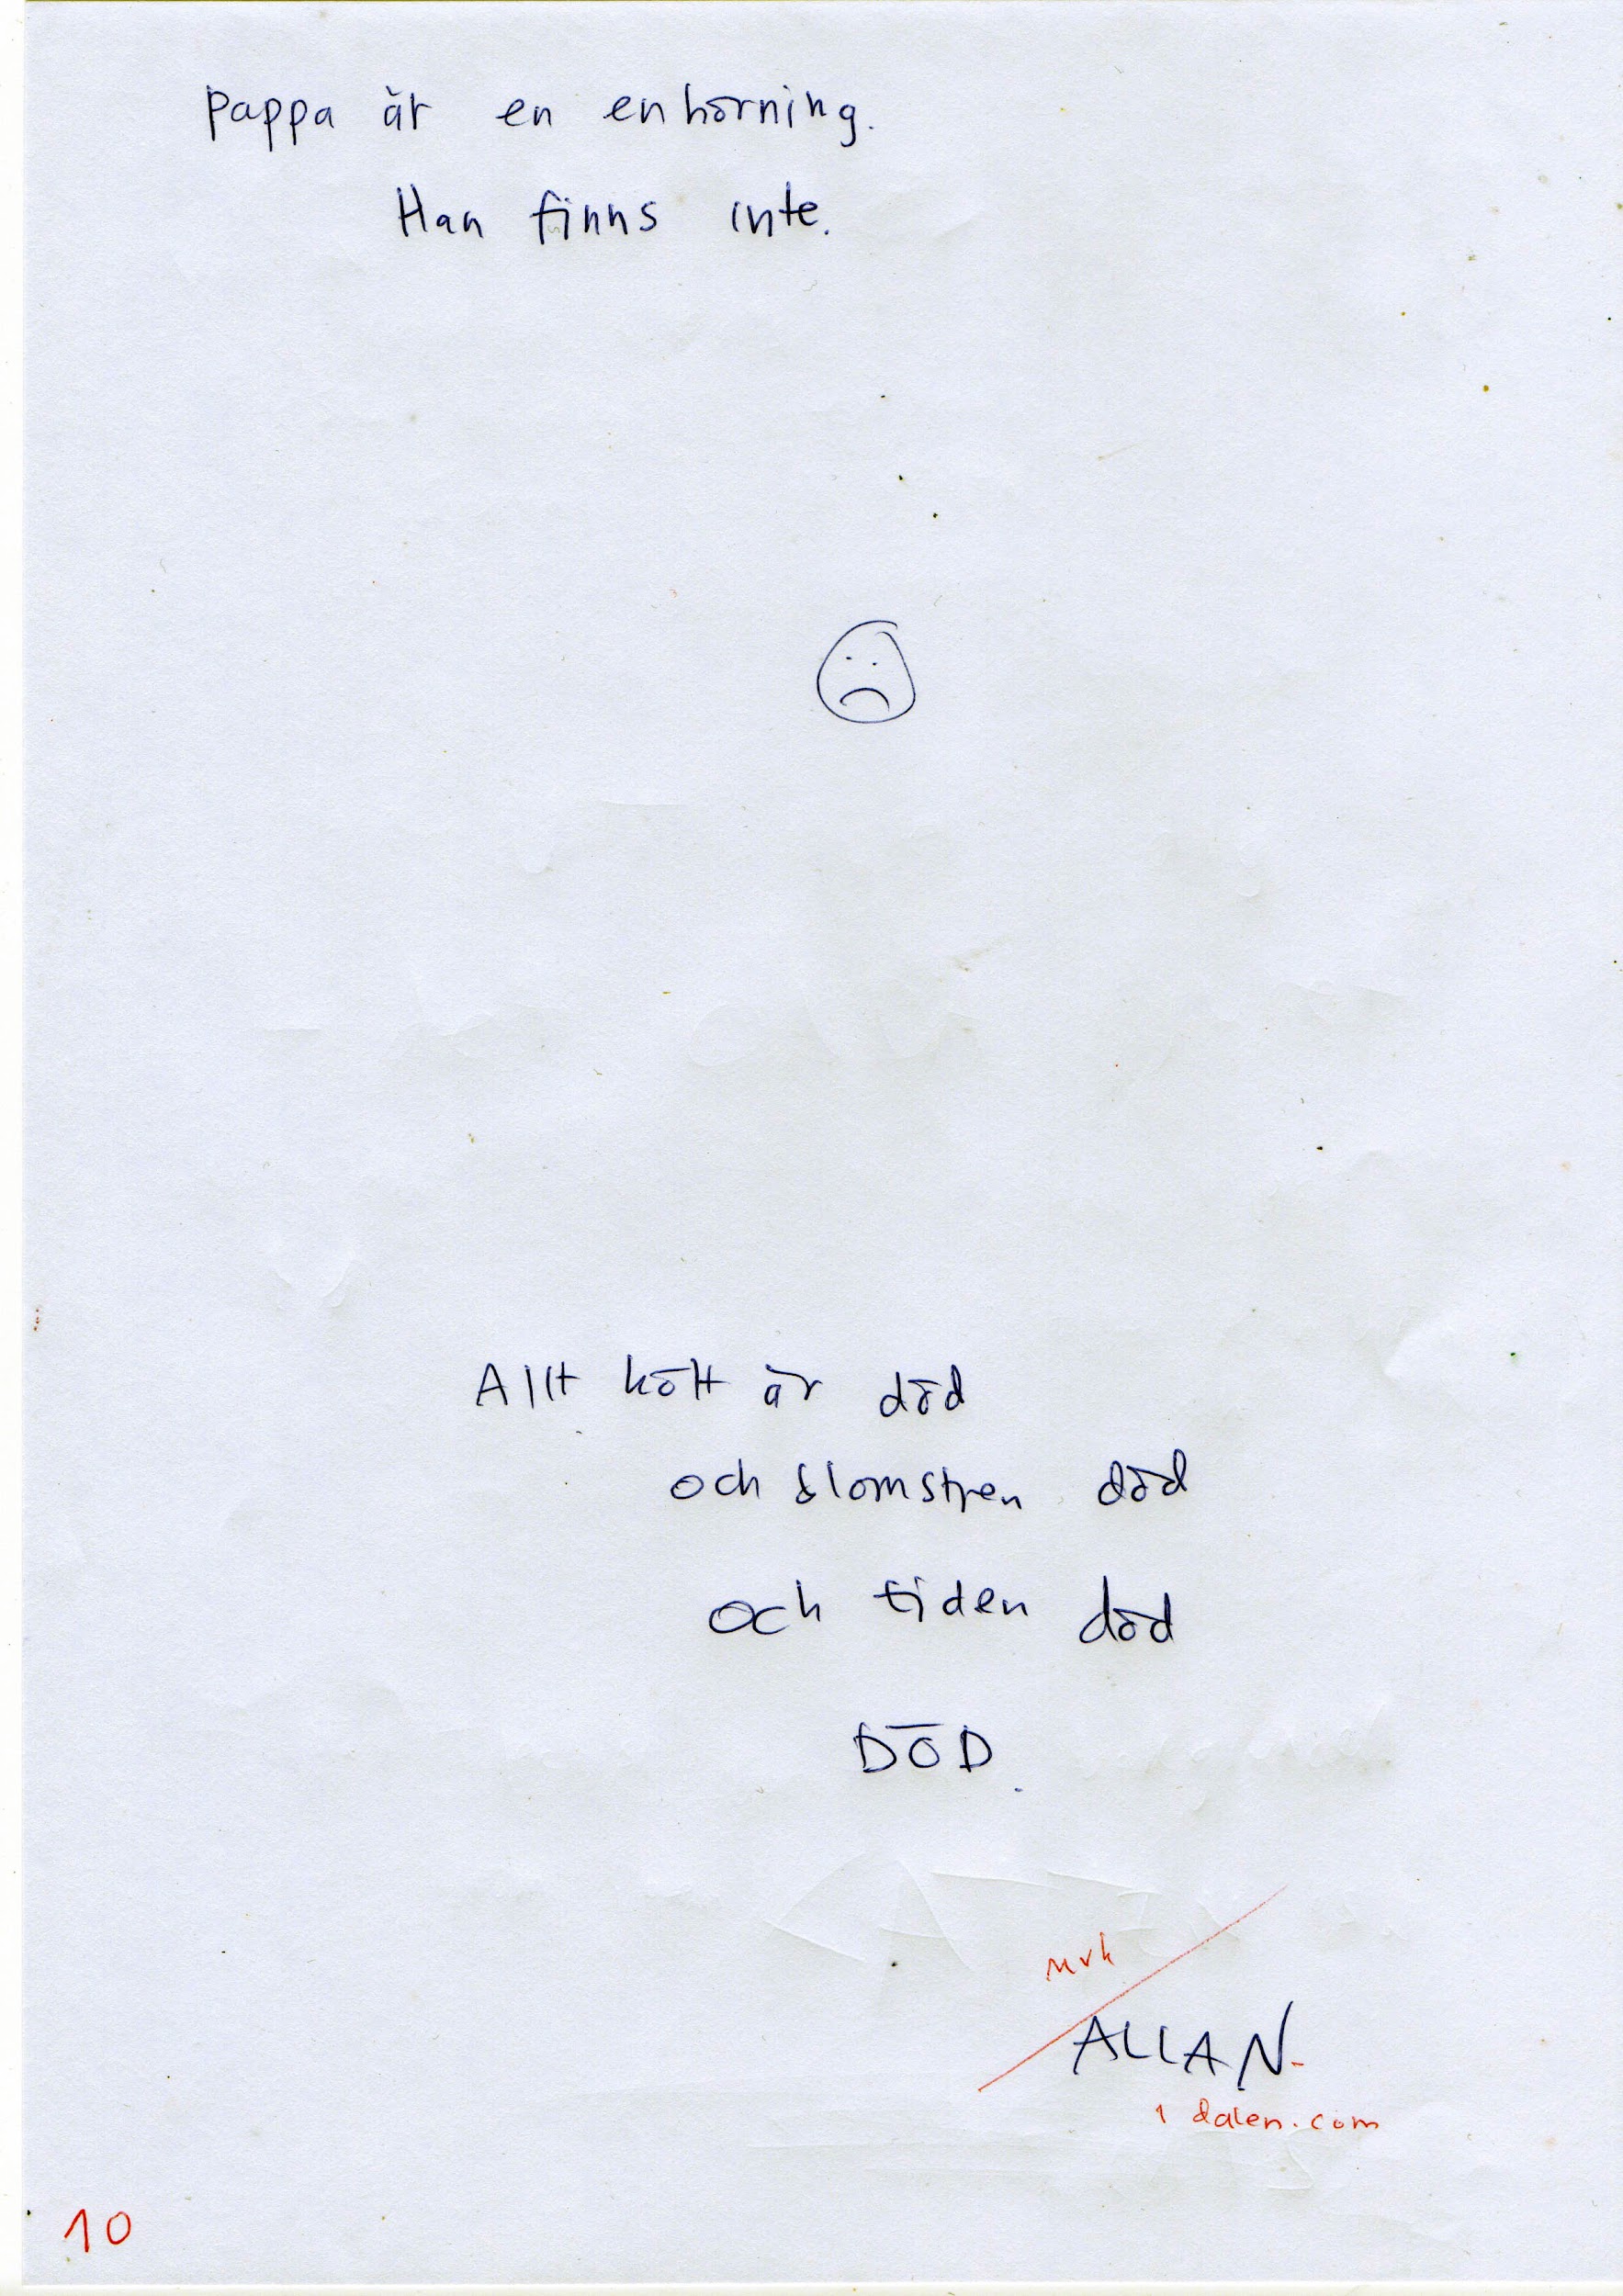 Pappa är en enhörning.
Han finns inte.
Allt kött är död
och blomstren död
och tiden död
DÖD.
mvh
ALLAN.
i dalen.com
10